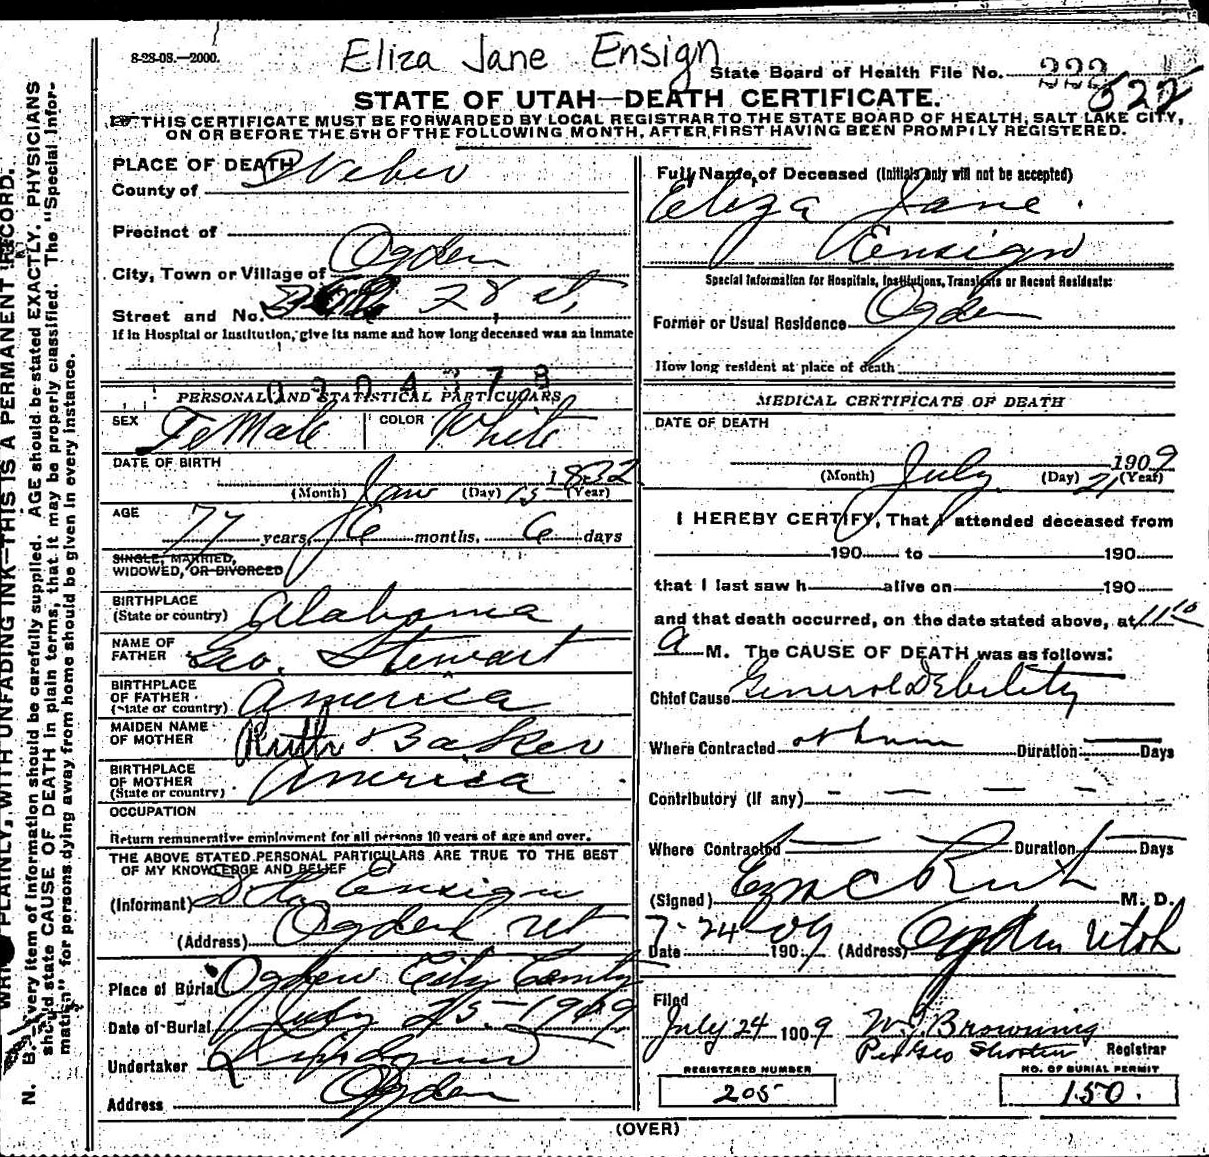 8-28-08.—2000.
Eliza Jane Ensign
State Board of Health File No. 222
522
STATE OF UTAH—DEATH CERTIFICATE.
THIS CERTIFICATE MUST BE FORWARDED BY LOCAL REGISTRAR TO THE STATE BOARD OF HEALTH, SALT LAKE CITY,
ON OR BEFORE THE 5TH OF THE FOLLOWING MONTH, AFTER FIRST HAVING BEEN PROMPTLY REGISTERED.
PLACE OF DEATH
County of Weber
Precinct of
City, Town or Village of Ogden
Street and No. 28 st,
If in Hospital or Institution, give its name and how long deceased was an inmate
PERSONAL AND STATISTICAL PARTICULARS
SEX FeMale COLOR White
DATE OF BIRTH
(Month) Jan (Day) 15 1832 (Year)
AGE
77 years, 6 months, 6 days
SINGLE, MARRIED,
WIDOWED, OR DIVORCED
BIRTHPLACE
(State or country) Alabama
NAME OF
FATHER Geo. Stewart
BIRTHPLACE
OF FATHER
(State or country) America
MAIDEN NAME
OF MOTHER Ruth Baker
BIRTHPLACE
OF MOTHER
(State or country) America
OCCUPATION
Return remunerative employment for all persons 10 years of age and over.
THE ABOVE STATED PERSONAL PARTICULARS ARE TRUE TO THE BEST
OF MY KNOWLEDGE AND BELIEF
(Informant) Ensign
(Address) Ogden Ut
Place of Burial Ogden City Cemty
Date of Burial July 25-1909
Undertaker
Address Ogden
Full Name of Deceased (Initials only will not be accepted)
Eliza Jane
Ensign
Special Information for Hospitals, Institutions, Transients or Recent Residents:
Former or Usual Residence Ogden
How long resident at place of death
MEDICAL CERTIFICATE OF DEATH
DATE OF DEATH
(Month) July (Day) 21 1909 (Year)
I HEREBY CERTIFY, That I attended deceased from
190 to 190
that I last saw h alive on 190
and that death occurred, on the date stated above, at 11 10
a M. The CAUSE OF DEATH was as follows:
Chief Cause General Debility
Where Contracted at home Duration Days
Contributory (If any)
Where Contracted Duration Days
(Signed) M. D.
Date 7-24 1909 (Address) Ogden Utah
Filed
July 24 1909 W. J. Browning
Per Geo Shorten Registrar
REGISTERED NUMBER
205
NO. OF BURIAL PERMIT
150.
(OVER)
PLAINLY, WITH UNFADING INK—THIS IS A PERMANENT RECORD.
N. B.—Every item of information should be carefully supplied. AGE should be stated EXACTLY. PHYSICIANS
should state CAUSE OF DEATH in plain terms, that it may be properly classified. The "Special Infor-
mation" for persons dying away from home should be given in every instance.